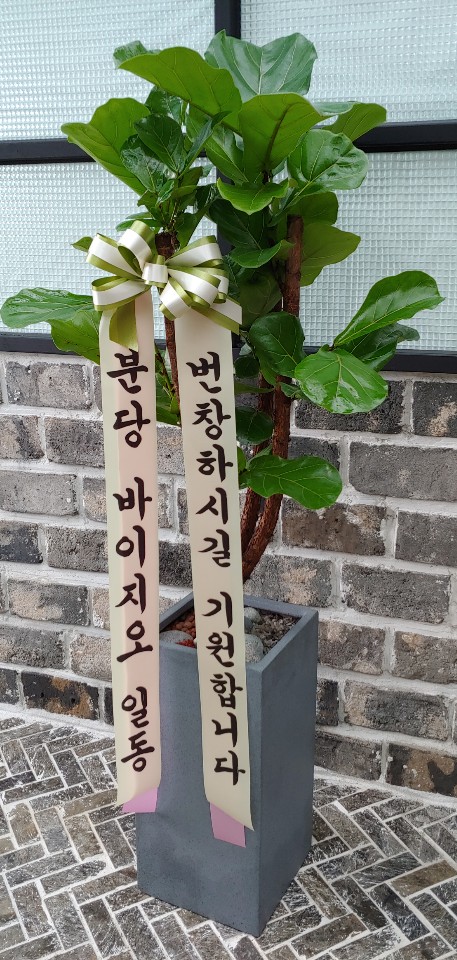 번창하시길 기원합니다
분당 바이지오 일동